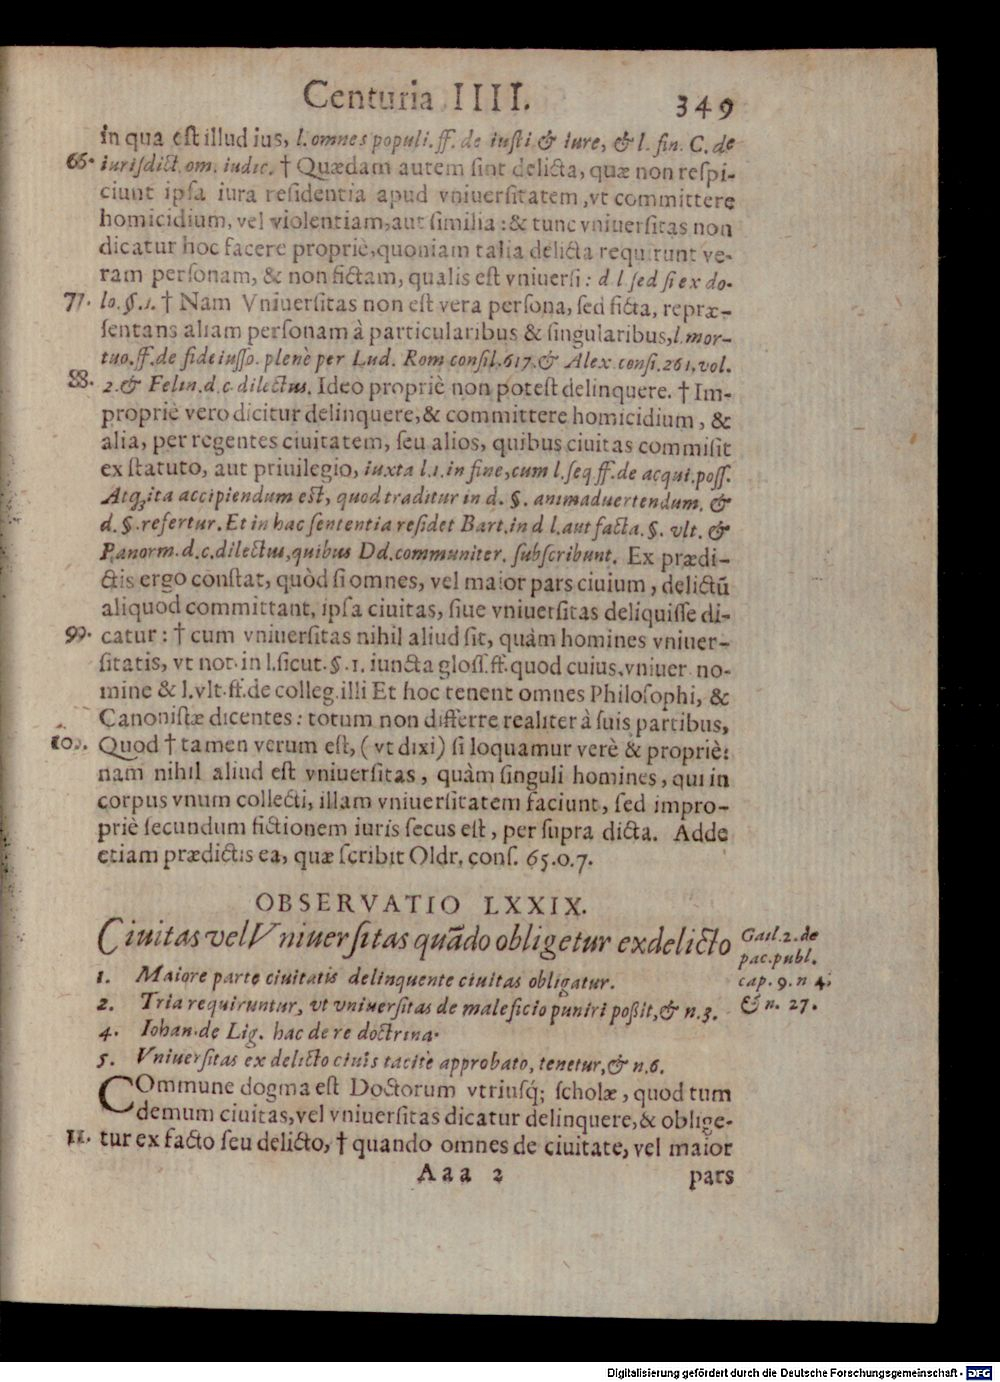 Centuria IIII. 349
in qua eſt illud ius, l. omnes populi. ff. de iuſti & iure, & l. fin. C. de
66. iuriſdict. om. iudic. † Quædam autem ſint delicta, quæ non reſpi-
ciunt ipſa iura reſidentia apud vniuerſitatem, vt committere
homicidium, vel violentiam, aut ſimilia: & tunc vniuerſitas non
dicatur hoc facere propriè, quoniam talia delicta requirunt ve-
ram perſonam, & non fictam, qualis eſt vniuerſi: d l. ſed ſi ex do-
77. lo. §. 1. † Nam Vniuerſitas non eſt vera perſona, ſed ficta, repræ-
ſentans aliam perſonam à particularibus & ſingularibus, l. mor-
tuo. ff. de fideiuſſo. plenè per Lud. Rom conſil. 617. & Alex. conſi. 261, vol.
88. 2. & Felin. d. c. dilectus. Ideo propriè non poteſt delinquere. † Im-
propriè vero dicitur delinquere, & committere homicidium, &
alia, per regentes ciuitatem, ſeu alios, quibus ciuitas commiſit
ex ſtatuto, aut priuilegio, iuxta l. 1. in fine, cum l. ſeq ff. de acqui. poſſ.
Atq; ita accipiendum eſt, quod traditur in d. §. animaduertendum. &
d. §. refertur. Et in hac ſententia reſidet Bart. in d l. aut facta. §. vlt. &
Panorm. d. c. dilectus, quibus Dd. communiter. ſubſcribunt. Ex prædi-
ctis ergo conſtat, quòd ſi omnes, vel maior pars ciuium, delictū
aliquod committant, ipſa ciuitas, ſiue vniuerſitas deliquiſſe di-
99. catur: † cum vniuerſitas nihil aliud ſit, quàm homines vniuer-
ſitatis, vt not. in l. ſicut. §. 1. iuncta gloſſ. ff. quod cuius. vniuer. no-
mine & l. vlt. ff. de colleg. illi Et hoc tenent omnes Philoſophi, &
Canoniſtæ dicentes: totum non differre realiter à ſuis partibus,
100. Quod † tamen verum eſt, (vt dixi) ſi loquamur verè & propriè:
nam nihil aliud eſt vniuerſitas, quàm ſinguli homines, qui in
corpus vnum collecti, illam vniuerſitatem faciunt, ſed impro-
priè ſecundum fictionem iuris ſecus eſt, per ſupra dicta. Adde
etiam prædictis ea, quæ ſcribit Oldr. conſ. 65. o. 7.
OBSERVATIO LXXIX.
Ciuitas vel Vniuerſitas quādo obligetur ex delicto
Gail. 2. de
pac. publ.
cap. 9. n 4.
& n. 27.
1. Maiore parte ciuitatis delinquente ciuitas obligatur.
2. Tria requiruntur, vt vniuerſitas de maleficio puniri poßit, & n. 3.
4. Iohan. de Lig. hac de re doctrina.
5. Vniuerſitas ex delicto ciuis tacitè approbato, tenetur, & n. 6.
COmmune dogma eſt Doctorum vtriuſq; ſcholæ, quod tum
demum ciuitas, vel vniuerſitas dicatur delinquere, & oblige-
11. tur ex facto ſeu delicto, † quando omnes de ciuitate, vel maior
Aaa 2 pars
Digitalisierung gefördert durch die Deutsche Forschungsgemeinschaft - DFG